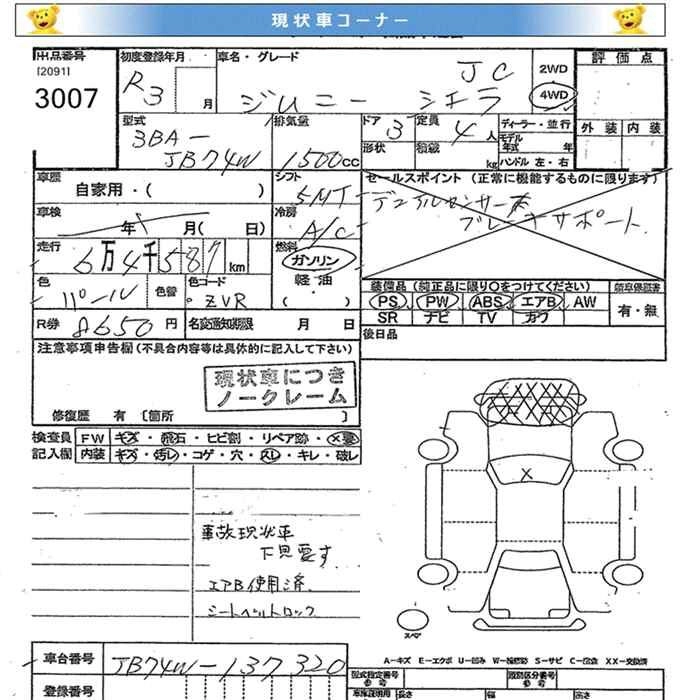 現状車コーナー
出品番号
[2091]
3007
初度登録年月
R3 月
車名・グレード
JC
ジムニー シエラ
2WD
4WD
評価点
外装 内装
型式
3BA-
JB74W
排気量
1500cc
ドア 3
形状
定員 4人
積載 kg
ディーラー・並行
モデル年式 年
ハンドル 左・右
車歴
自家用・( )
シフト
5MT
セールスポイント (正常に機能するものに限ります)
デュアルセンサー
ブレーキサポート
車検
年 月( 日)
冷房
A/C
走行
6万4千587km
燃料
ガソリン
軽油
・( )
色
パール
色替
色コード
ZVR
装備品 (純正品に限り○をつけてください)
PS PW ABS エアB AW
SR ナビ TV カワ
新車保証書
有・無
R券 8650円
名変通知期限 月 日
後日品
注意事項申告欄 (不具合内容等は具体的に記入して下さい)
現状車につき
ノークレーム
修復歴 有 [箇所 ]
検査員
記入欄
FW キズ・飛石・ヒビ割・リペア跡・X要
内装 キズ・汚レ・コゲ・穴・スレ・キレ・破レ
事故現状車
下見要す
エアB使用済
シートベルトロック
X
スペア
車台番号 JB74W-137320
A-キズ E-エクボ U-凹み W-補修跡 S-サビ C-腐食 XX-交換済
登録番号
型式指定番号
類別区分番号
長さ
幅
高さ